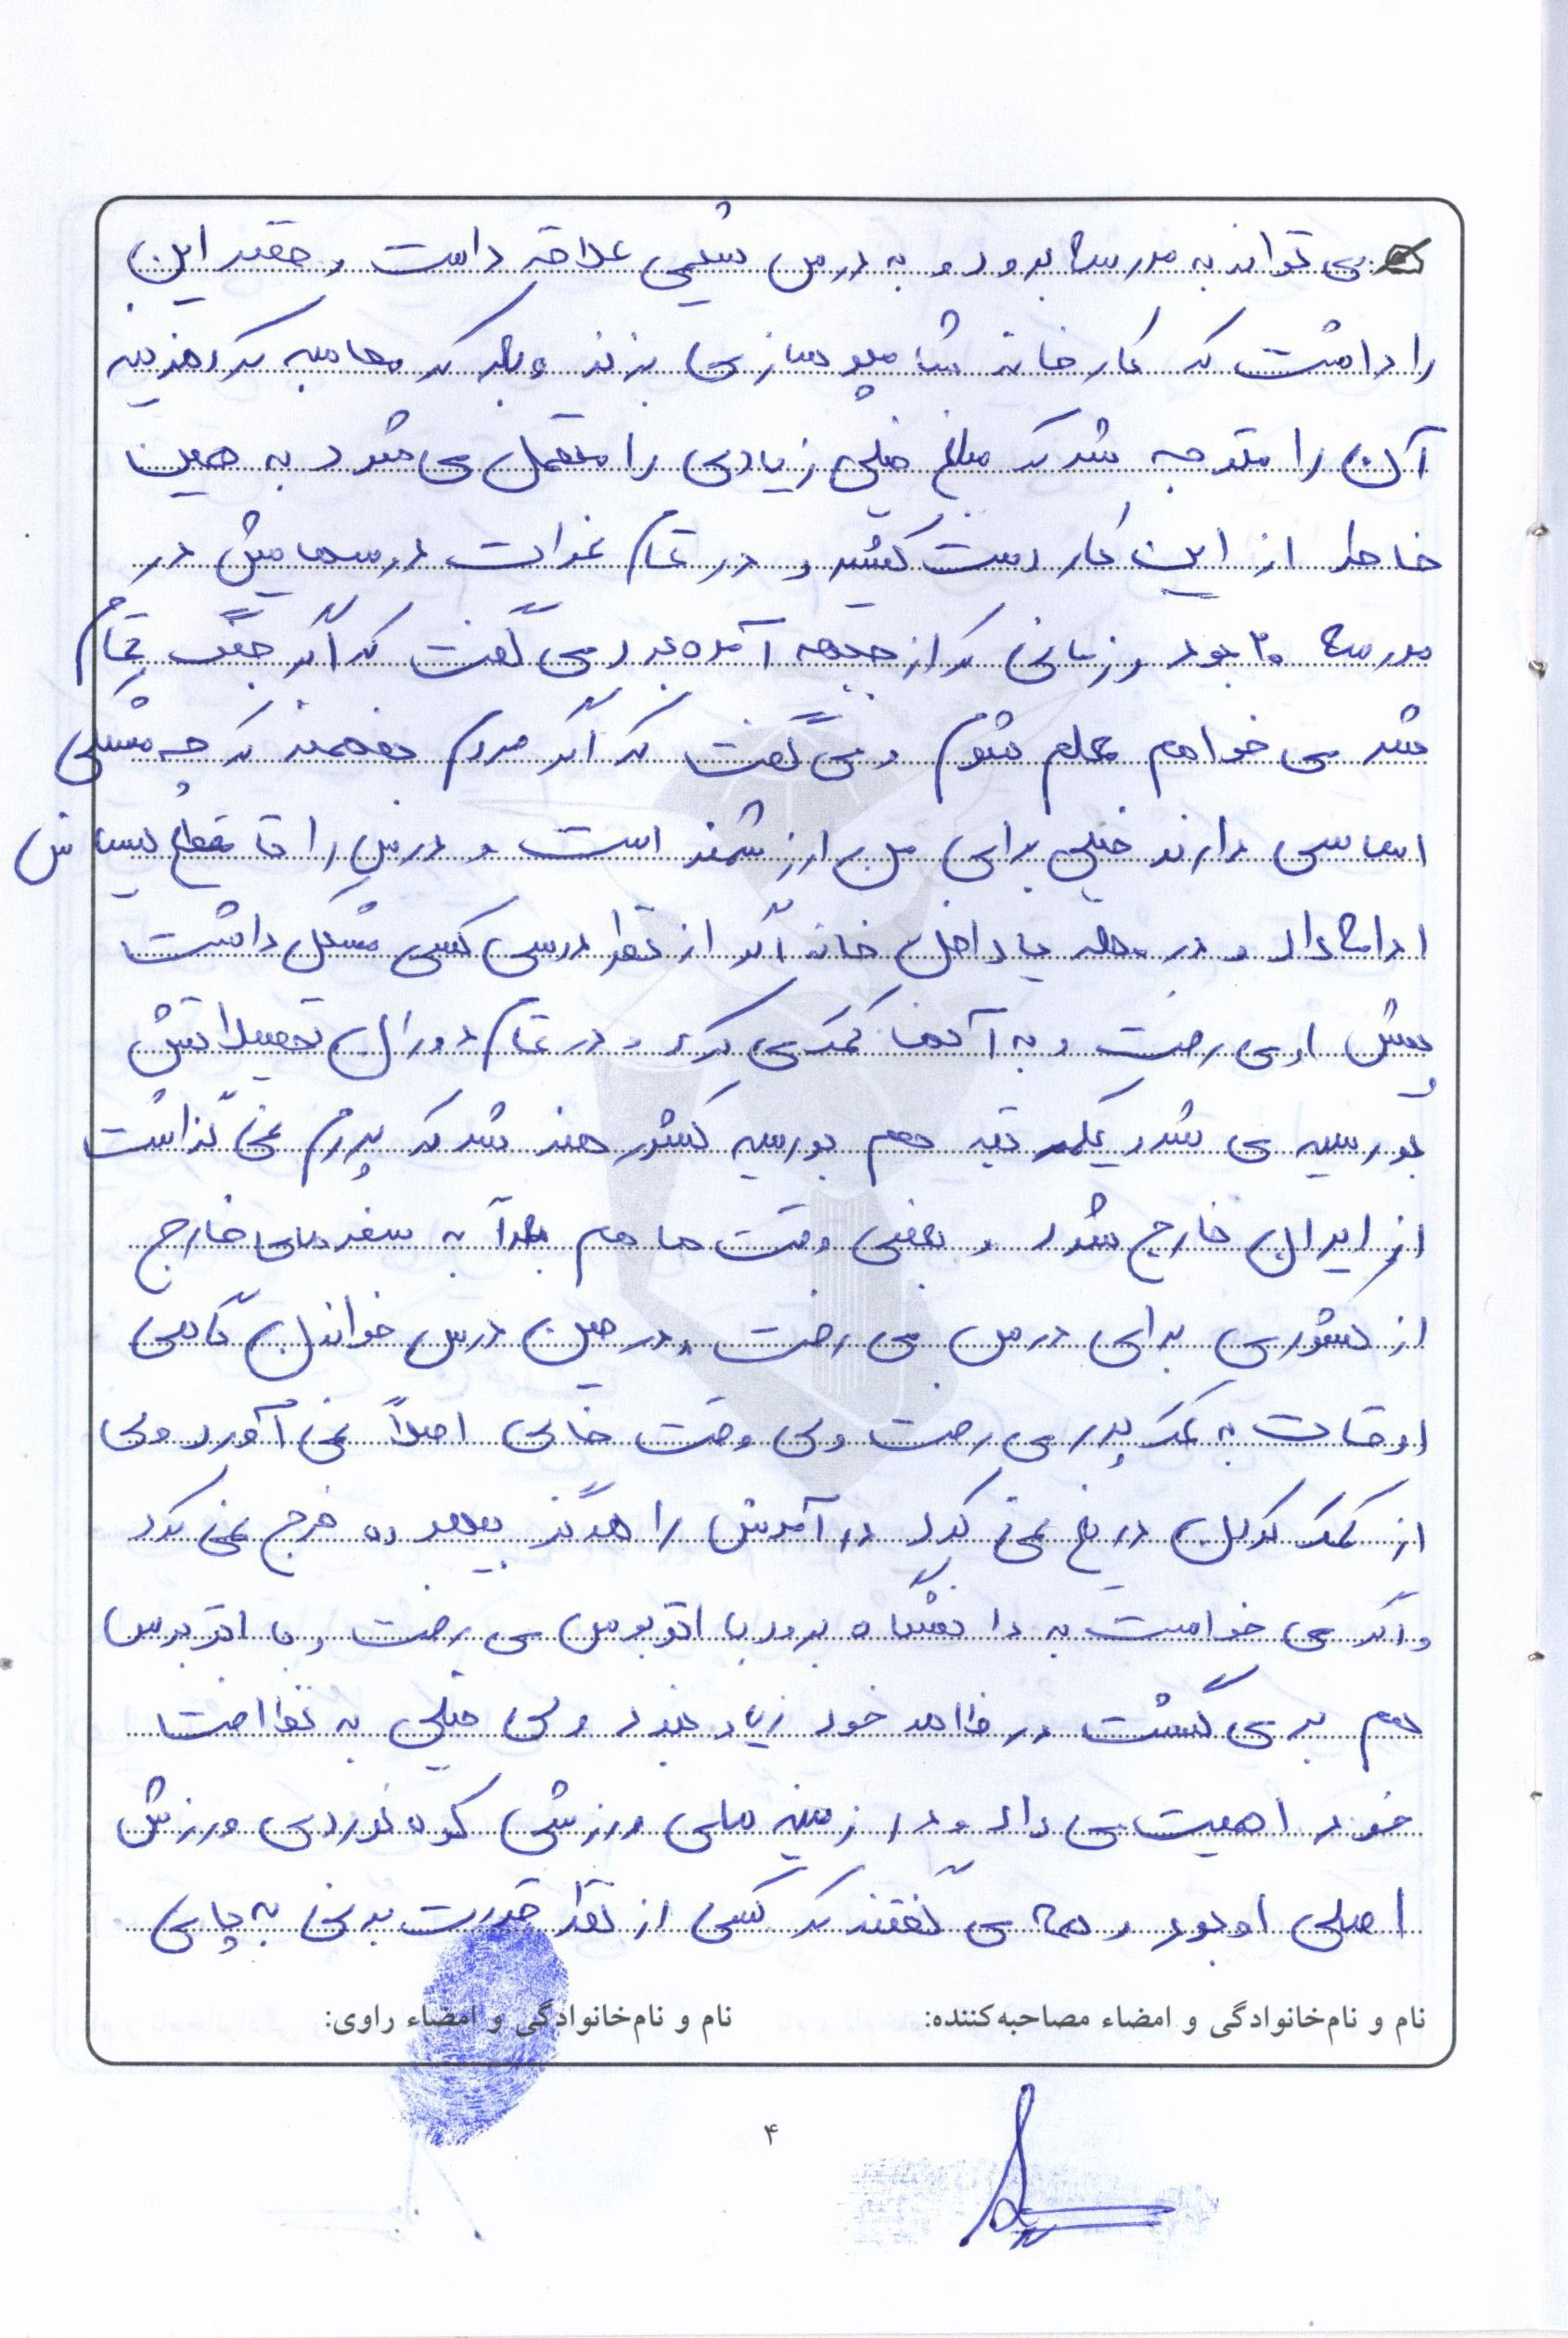 می تواند به مدرسه برود و به درس شیمی علاقه داشت و قصد این
را داشت که کارخانه شامپو سازی بزند و بعد که محاسبه کرد هزینه
آن را متوجه شد که مبلغ خیلی زیادی را متحمل می شود به همین
خاطر از این کار دست کشید و در تمام نمرات درسهایش در
مدرسه ۲۰ بود و زمانی که از جبهه آمده بود می گفت که اگر جنگ تمام
شد می خواهم معلم شوم و می گفت که اگر مردم بفهمند که چه مشکلی
اساسی دارند خیلی برای من ارزشمند است و درس را تا مقطع لیسانس
ادامه داد و در محله یا داخل خانه اگر از نظر درسی کسی مشکل داشت
پیش او می رفت و به آنها کمک می کرد و در تمام دوران تحصیلاتش
بورسیه می شد و یکمرتبه هم بورسیه کشور هند شد که پدرم نمی گذاشت
از ایران خارج شود و بعضی وقت ها هم بعداً به سفرهای خارج
از کشوری برای درس می رفت و در حین درس خواندن گاهی
اوقات به کمک پدر می رفت ولی وقت خالی اصلاً نمی آورد ولی
از کمک کردن دریغ نمی کرد درآمدش را هرگز بیهوده خرج نمی کرد
و اگر می خواست به دانشگاه برود با اتوبوس می رفت و با اتوبوس
هم بر می گشت در ظاهر خود زیاد نبود ولی خیلی به نظافت
خود اهمیت می داد و در زمینه های ورزشی کوه نوردی ورزش
اصلی او بود و همه می گفتند که کسی از نظر قدرت بدنی به پای
نام و نام‌خانوادگی و امضاء مصاحبه‌کننده: نام و نام‌خانوادگی و امضاء راوی:
۴